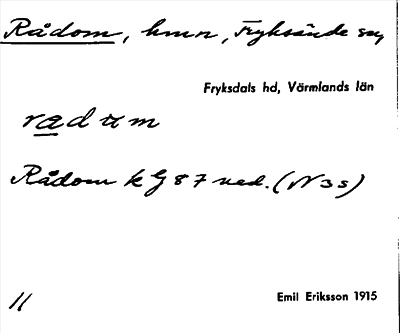 Rådom, hmn, Fryksände sn
Fryksdals hd, Värmlands län
radum
Rådom k G 87 ned. (N 3 s)
11
Emil Eriksson 1915